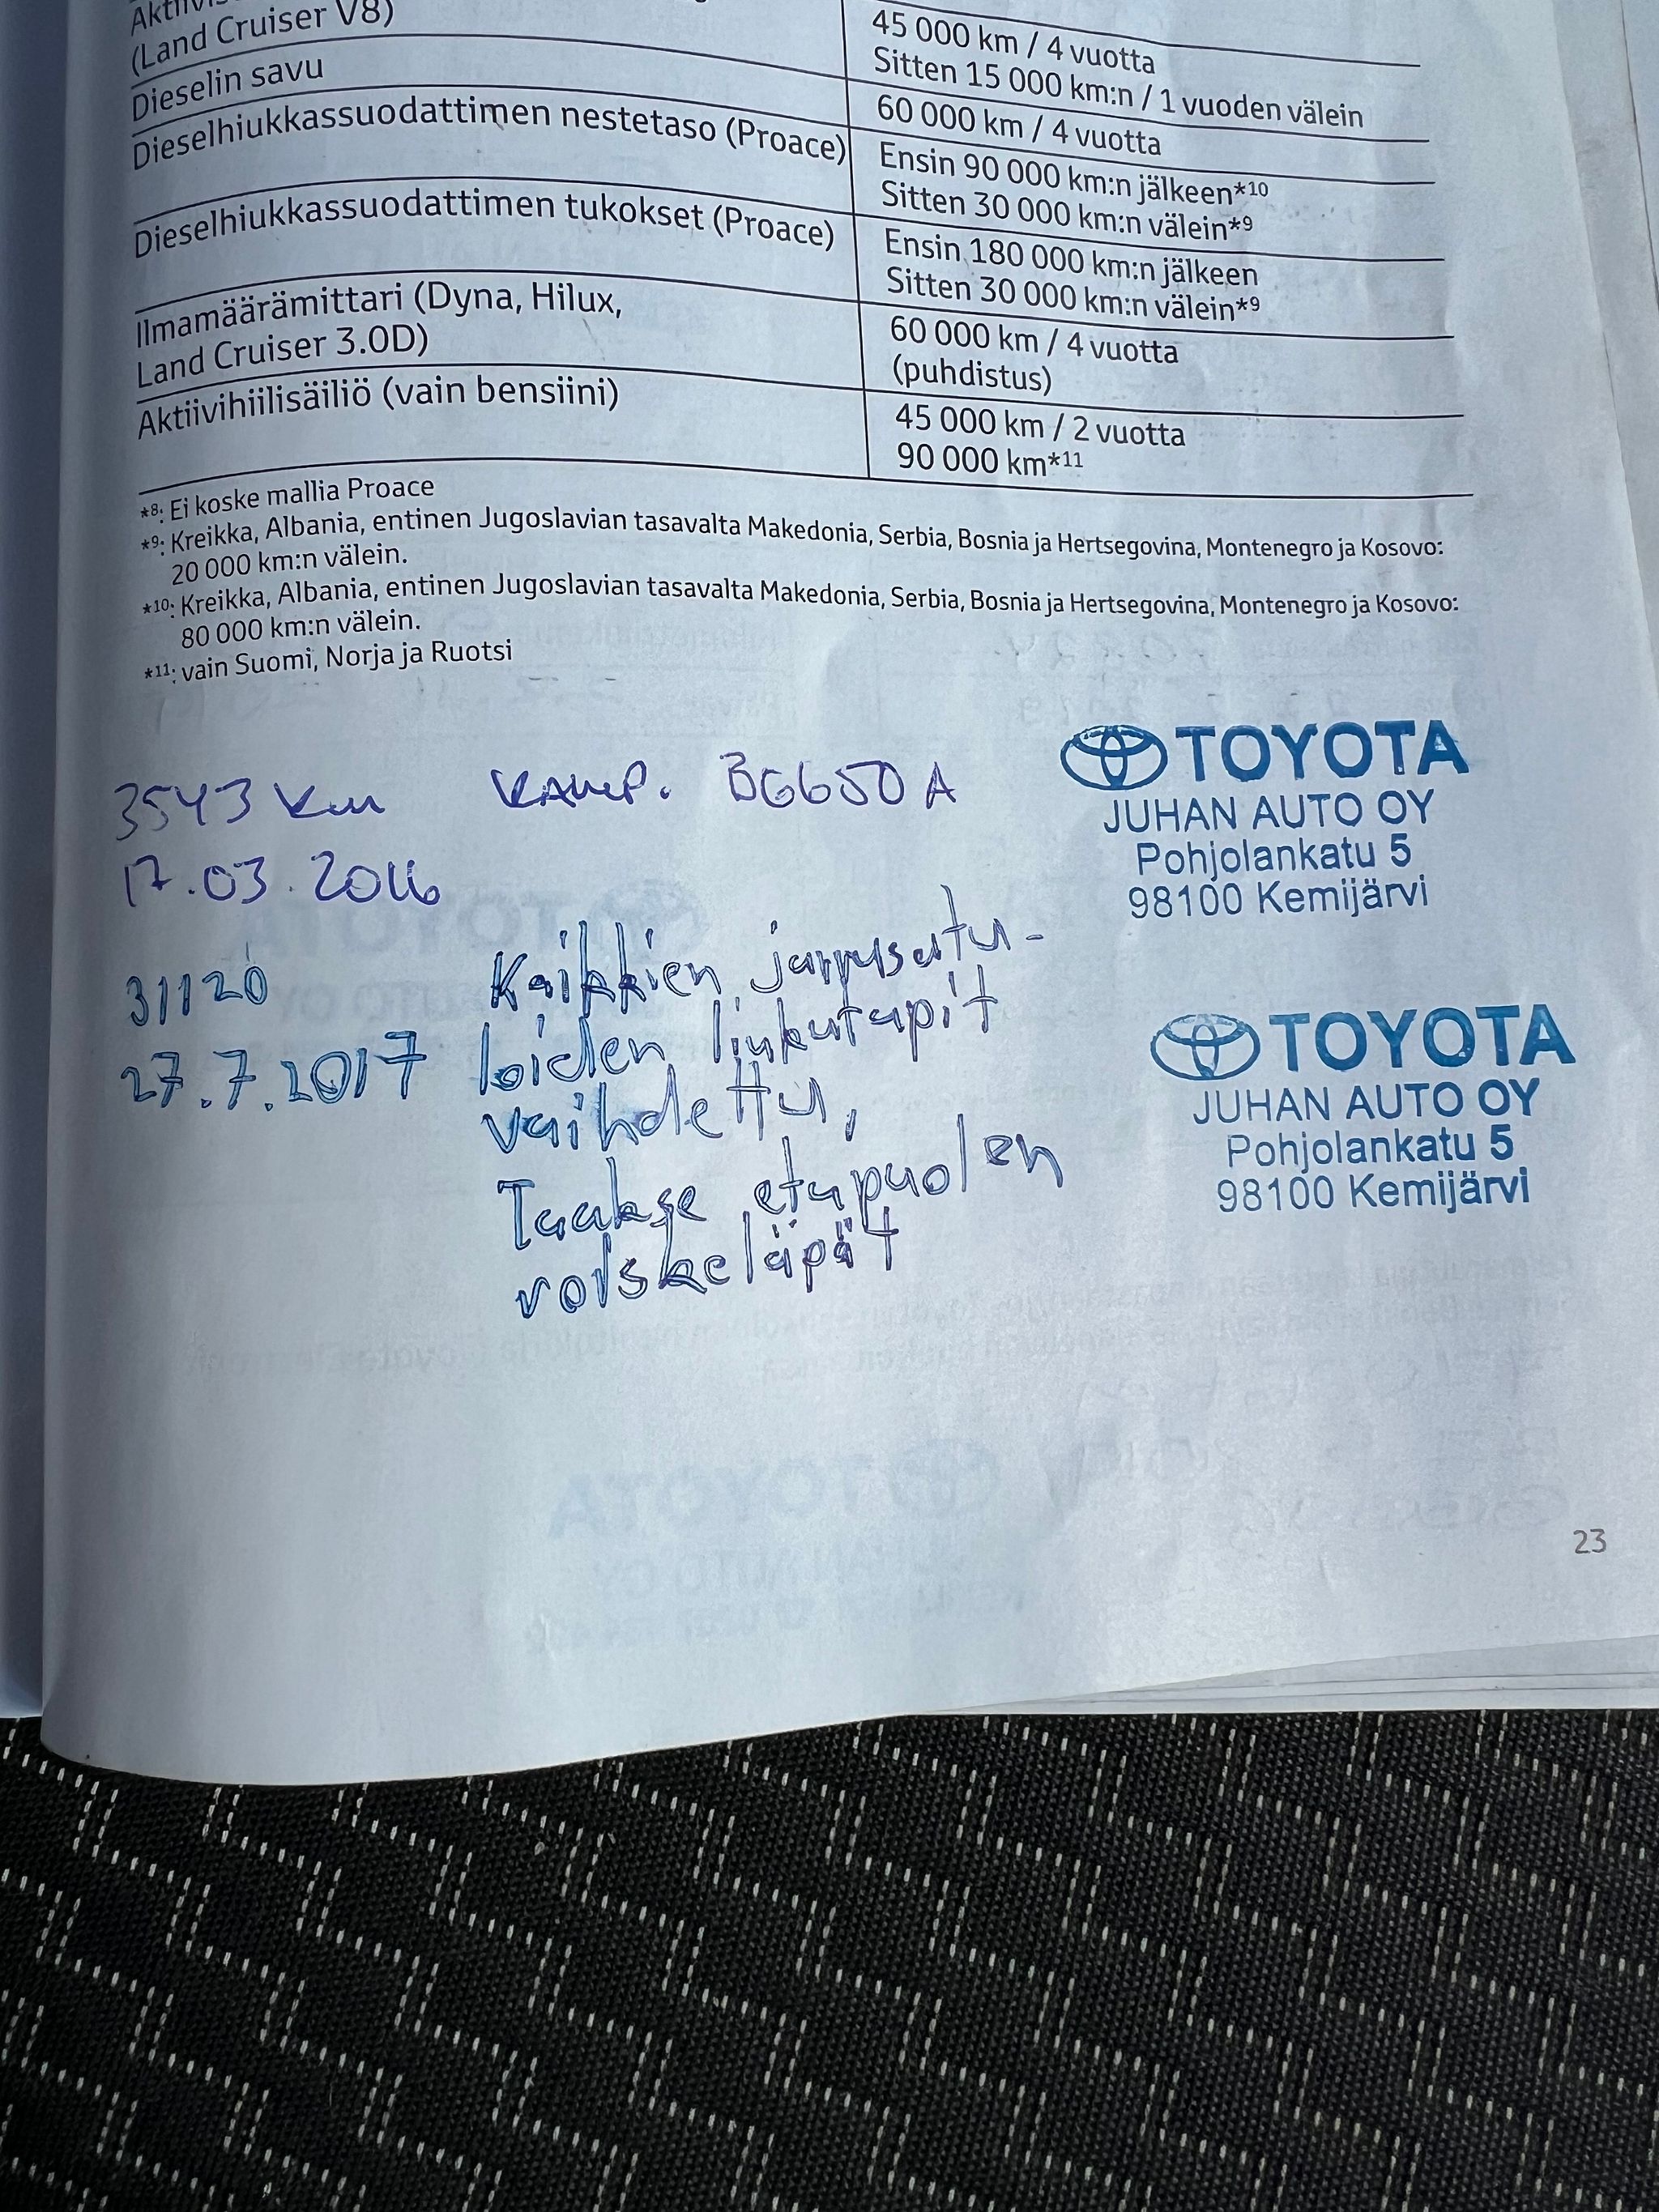 (Land Cruiser V8)
45 000 km / 4 vuotta
Sitten 15 000 km:n / 1 vuoden välein
Dieselin savu
60 000 km / 4 vuotta
Dieselhiukkassuodattimen nestetaso (Proace)
Ensin 90 000 km:n jälkeen*10
Sitten 30 000 km:n välein*9
Dieselhiukkassuodattimen tukokset (Proace)
Ensin 180 000 km:n jälkeen
Sitten 30 000 km:n välein*9
Ilmamäärämittari (Dyna, Hilux,
Land Cruiser 3.0D)
60 000 km / 4 vuotta
(puhdistus)
Aktiivihiilisäiliö (vain bensiini)
45 000 km / 2 vuotta
90 000 km*11
*8: Ei koske mallia Proace
*9: Kreikka, Albania, entinen Jugoslavian tasavalta Makedonia, Serbia, Bosnia ja Hertsegovina, Montenegro ja Kosovo:
20 000 km:n välein.
*10: Kreikka, Albania, entinen Jugoslavian tasavalta Makedonia, Serbia, Bosnia ja Hertsegovina, Montenegro ja Kosovo:
80 000 km:n välein.
*11: vain Suomi, Norja ja Ruotsi
3543 km KAMP. BG650A
17.03.2016
TOYOTA
JUHAN AUTO OY
Pohjolankatu 5
98100 Kemijärvi
31120
27.7.2017
Kaikkien jarrusatu-
loiden liukutapit
vaihdettu,
Taakse etupuolen
roiskeläpät
TOYOTA
JUHAN AUTO OY
Pohjolankatu 5
98100 Kemijärvi
23